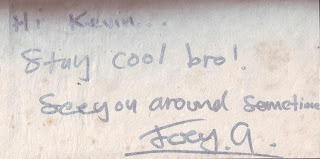 Hi Kevin...
Stay cool bro!
See you around sometime
Joey.G.